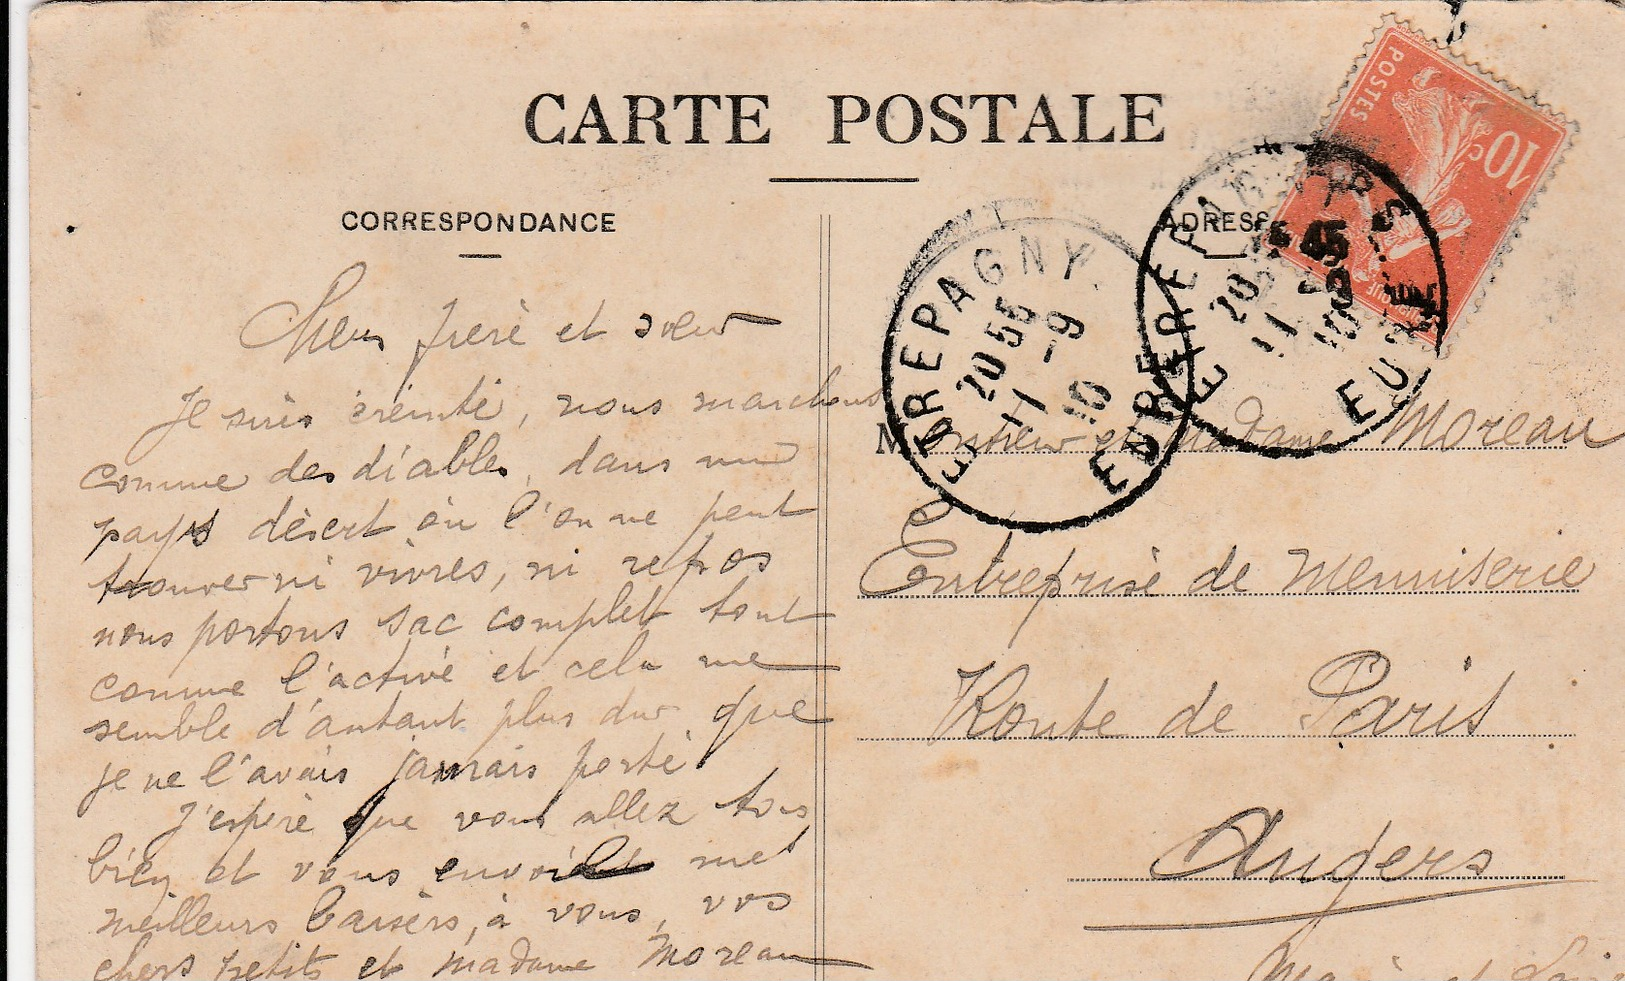 CARTE POSTALE
CORRESPONDANCE
Chers frère et sœur
Je suis éreinté, nous marchons
comme des diables, dans un
pays désert où l'on ne peut
trouver ni vivres, ni repos
nous portons sac complet tout
comme l'active et cela me
semble d'autant plus dur que
je ne l'avais jamais porté
J'espère que vous allez tous
bien et vous envoie mes
meilleurs baisers, à vous, vos
chers petits et madame Moreau
ADRESSE
POSTES
10c
ETREPAGNY
20 55
11 -9
10
EURE
ETREPAGNY
20
11
10
EURE
Monsieur et Madame Moreau
Entreprise de Menuiserie
Route de Paris
Angers